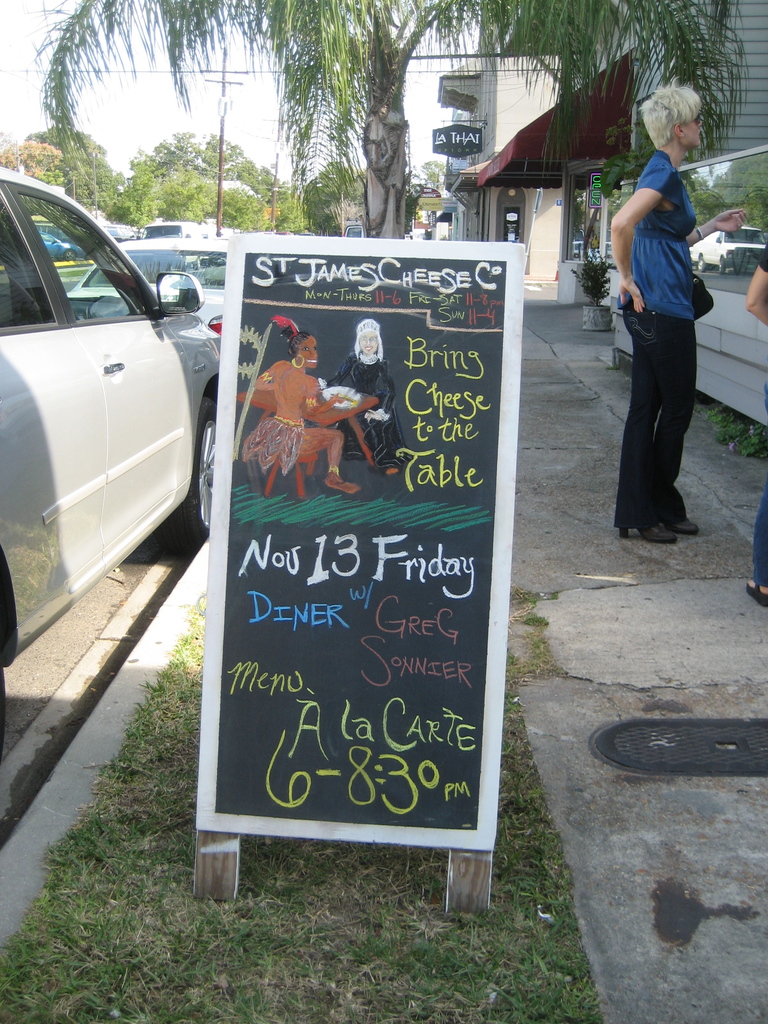 LA THAI
OPEN
ST JAMES CHEESE CO
MON-THURS 11-6 FRI-SAT 11-8pm
SUN 11-4
Bring
Cheese
to the
Table
Nov 13 Friday
DINER w/ GREG
SONNIER
Menu.
A la CARTE
6-8:30 PM